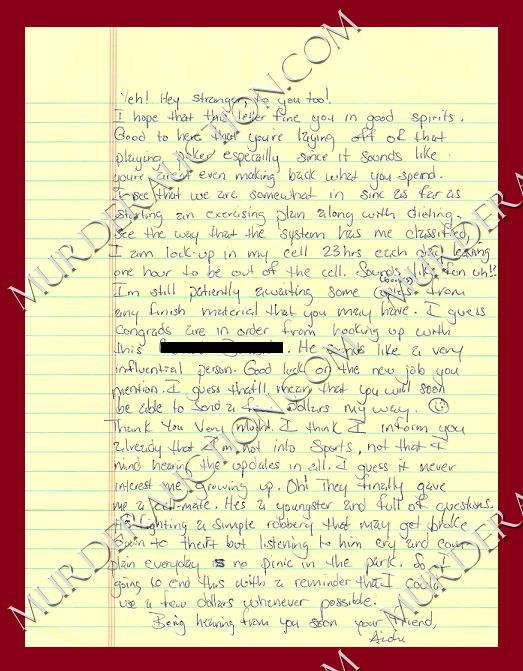 Yeh! Hey stranger, to you too!
I hope that this letter fine you in good spirits.
Good to here that you're laying off of that
playing poker especially since it sounds like
you're aren't even making back what you spend.
I see that we are somewhat in sinc as far as
starting an exercising plan along with dieting.
See the way that the system has me classified,
I am lock-up in my cell 23hrs each day leaving
one hour to be out of the cell. Sounds like fun uh!?
I'm still patiently awaiting some copies from
any finish material that you may have. I guess
congrads are in order from hooking up with
this . He sounds like a very
influential person. Good luck on the new job you
mention. I guess that'll mean that you will soon
be able to send a few dollars my way. ☺
Thank You Very Much. I think I inform you
already that I'm not into Sports, not that I
mind hearing the updates in all. I guess it never
interest me growing up. Oh! They finally gave
me a cell-mate. He's a youngster and full of questions.
He fighting a simple robbery that may get broke
down to theft but listening to him cry and com-
plain everyday is no pinic in the park. So I
going to end this with a reminder that I could
use a few dollars whenever possible.
Being hearing from you soon your friend,
MURDERAUCTION.COM
MURDERAUCTION.COM
MURDERAUCTION.COM